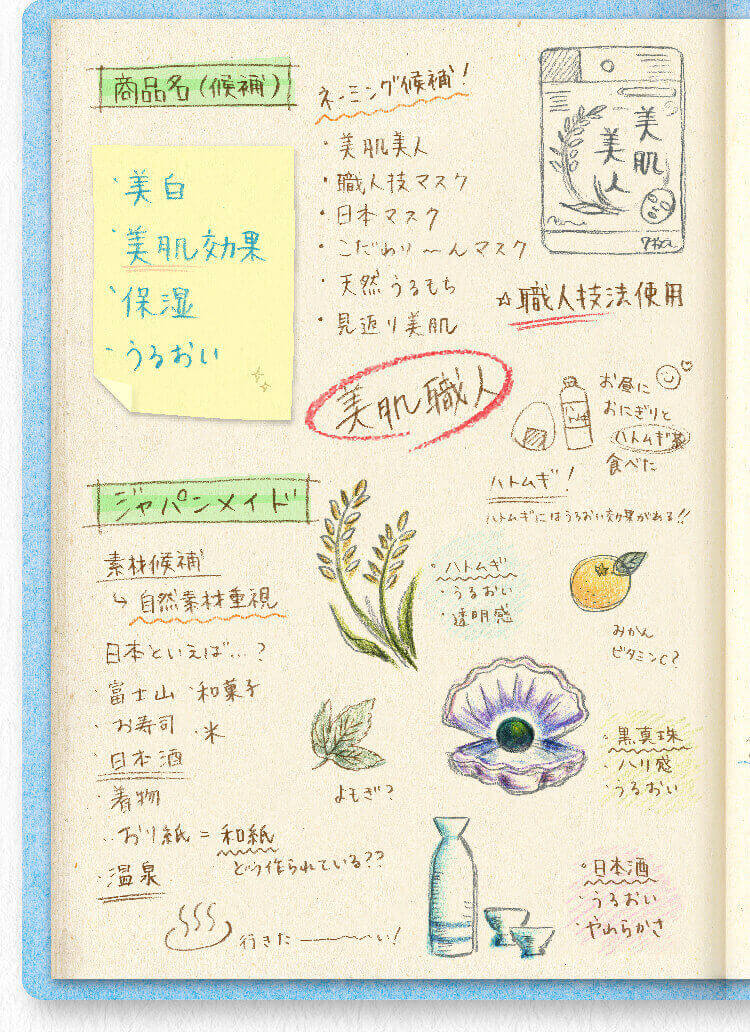 商品名(候補)
・美白
・美肌効果
・保湿
・うるおい
ネーミング候補!
・美肌美人
・職人技マスク
・日本マスク
・こだわり〜んマスク
・天然うるもち
・見返り美肌
美肌職人
美肌
美人
7枚入
☆職人技法使用
お昼に
おにぎりと
ハトムギ茶
食べた
ハトムギ!
ハトムギにはうるおい効果がある!!
ジャパンメイド
素材候補
↳自然素材重視
日本といえば…?
・富士山 ・和菓子
・お寿司 ・米
・日本酒
・着物
・おり紙=和紙
どう作られている??
・温泉
行きた―――い!
ハトムギ
・うるおい
・透明感
みかん
ビタミンC?
よもぎ?
・黒真珠
・ハリ感
・うるおい
日本酒
・うるおい
・やわらかさ